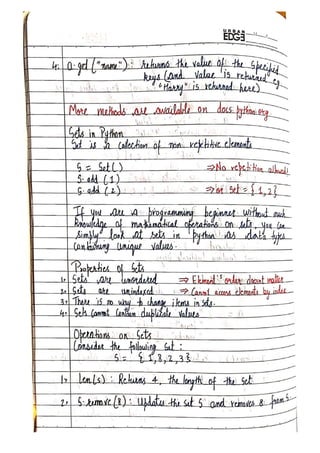 EDGE
4. a.get ("name"): Returns the value of the specified
keys (and value is returned eg
"Harry" is returned here)
More methods are available on docs.python.org
Sets in Python
Set is a collection of non repetitive elements
S = Set ( ) ⇒ No repetition allowed!
S. add (1)
S. add (2) ⇒ or Set = {1,2}
If you are a programming beginner without much
knowledge of mathematical operations on sets, you can
simply look at sets in python as data types
containing unique values.
Properties of Sets
1. Sets are unordered ⇒ Element's order doesnt matter
2. Sets are unindexed ⇒ Cannot access elements by index
3. There is no way to change items in sets.
4. Sets cannot contain duplicate values
Operations on Sets
Consider the following set:
S = {1,8,2,3}
1. len(s): Returns 4, the length of the set
2. S.remove(8): Updates the set S and removes 8 from S.